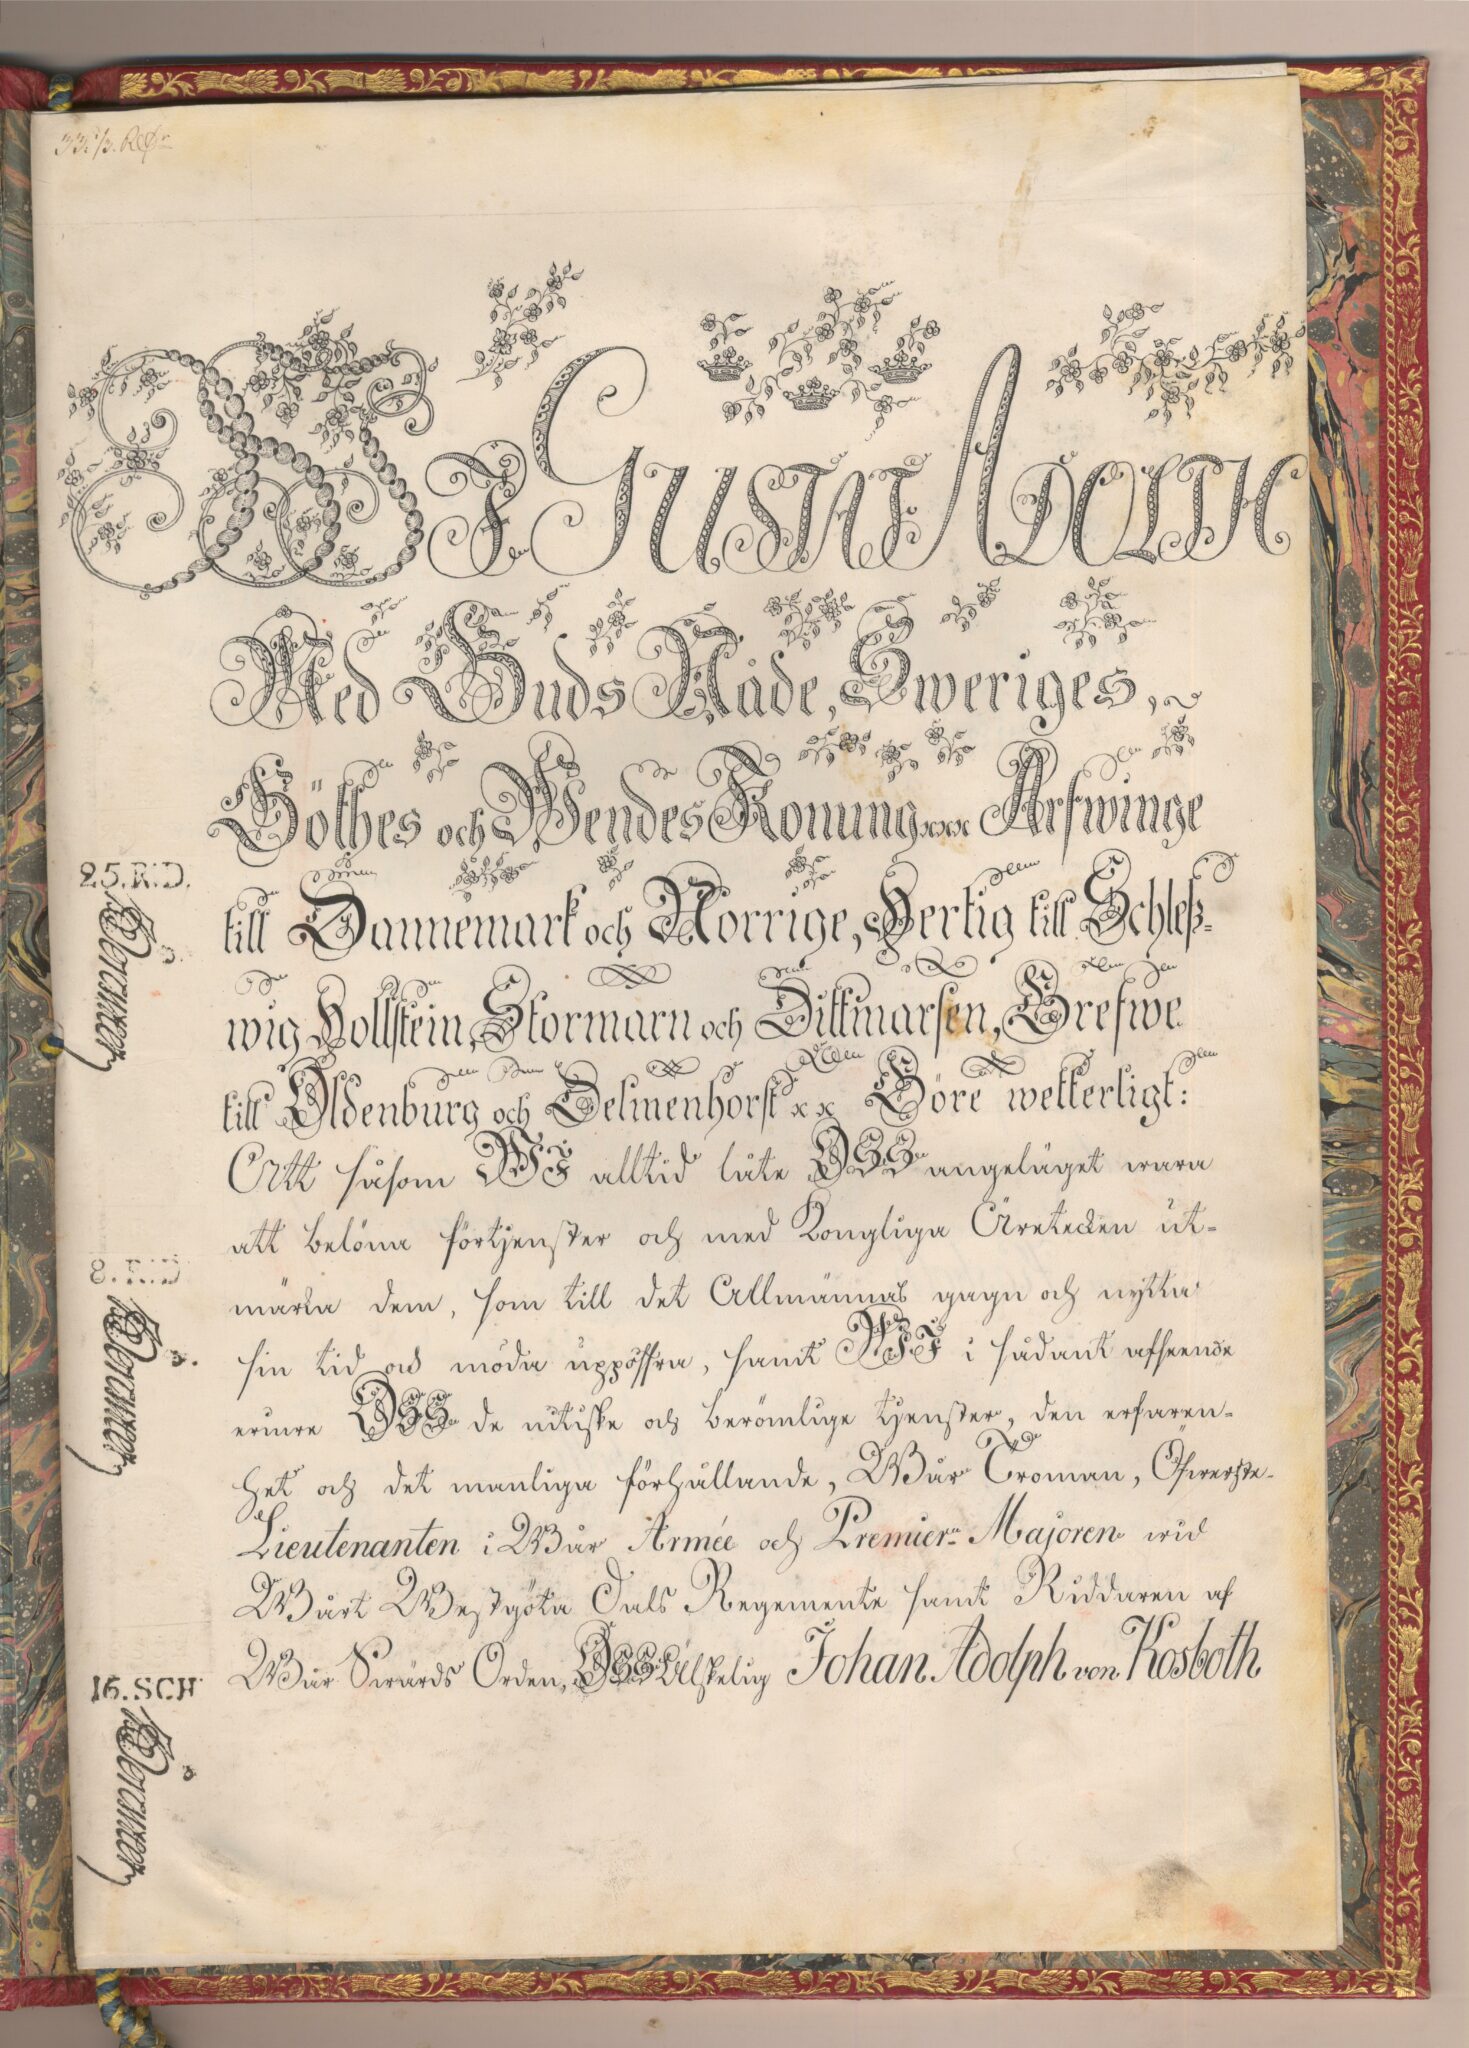 33 1/3. RD
WJ GUSTAF ADOLPH
Med Guds Nåde, Sweriges,
Göthes och Wendes Konung xxx Arfwinge
till Dannemark och Norrige, Hertig till Schleß-
wig Hollstein, Stormarn och Dittmarsen, Grefwe
till Oldenburg och Delmenhorst x x Göre wetterligt:
Att såsom WJ alltid låte OSS angeläget wara
att belöna förtjenster och med Kongliga Äretecken ut-
märka dem, som till det Allmännas gagn och nytta
sin tid och möda uppoffra, samt WJ i sådant afseende
erinre OSS de nitiske och berömlige tjenster, den erfaren-
het och det manliga förhållande, Wår Troman, Öfwerste-
Lieutenanten i Wår Armée och Premier-Majoren wid
Wårt Westgöta Dals Regemente samt Riddaren af
Wår Swärds Orden, OSS Älskelig Johan Adolph von Kosboth
25. R:D.
8. R:D
16. SCH